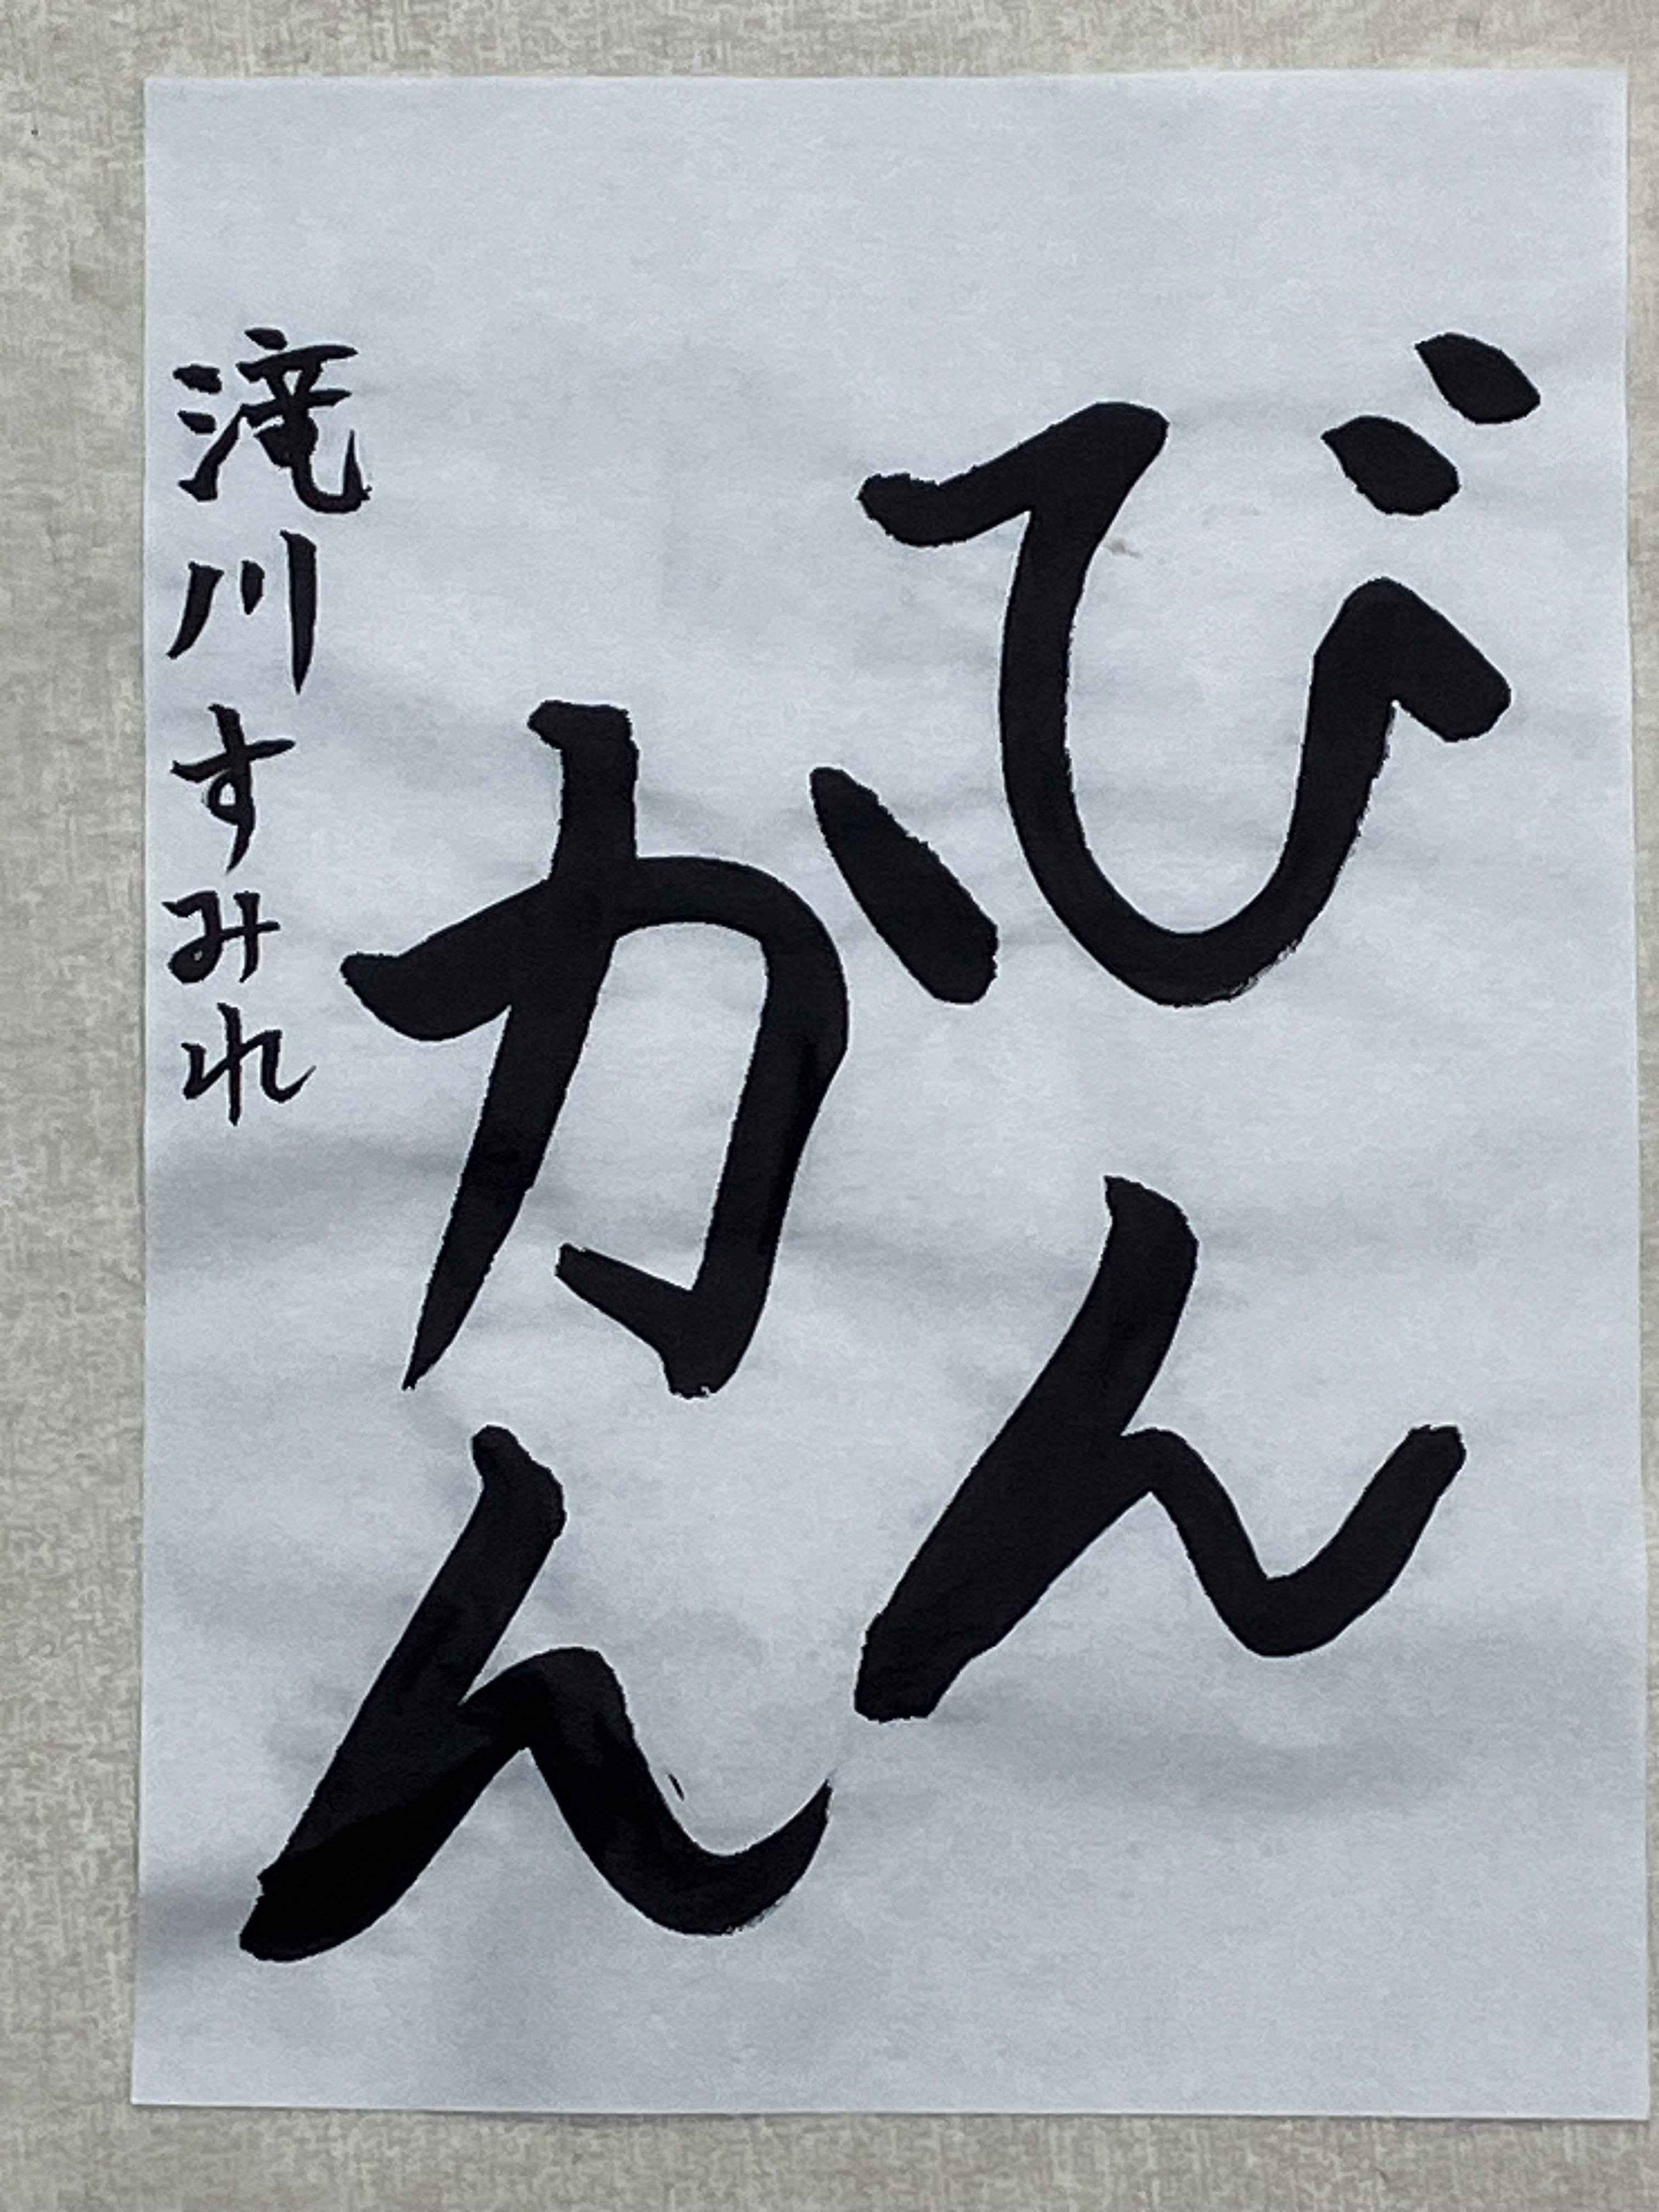 びん
かん
滝川すみれ